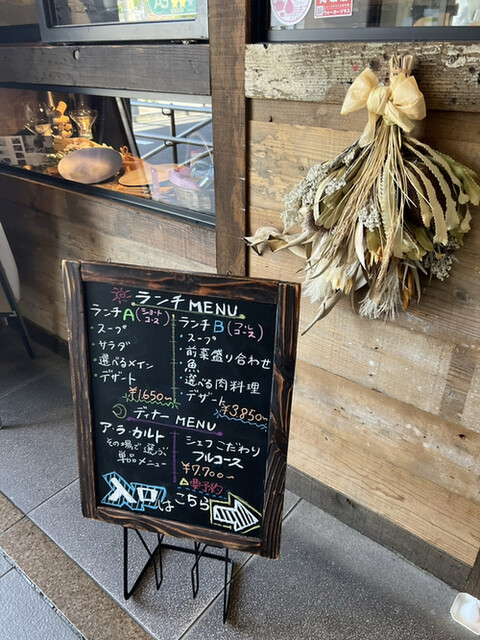 ランチMENU
ランチA(ショートコース)
・スープ
・サラダ
・選べるメイン
・デザート
¥1650~
ランチB(フルコース)
・スープ
・前菜盛り合わせ
・魚
・選べる肉料理
・デザート
¥3850~
ディナーMENU
ア・ラ・カルト
その場で選ぶ
単品メニュー
シェフこだわり
フルコース
¥7.700~
要予約
入口はこちら